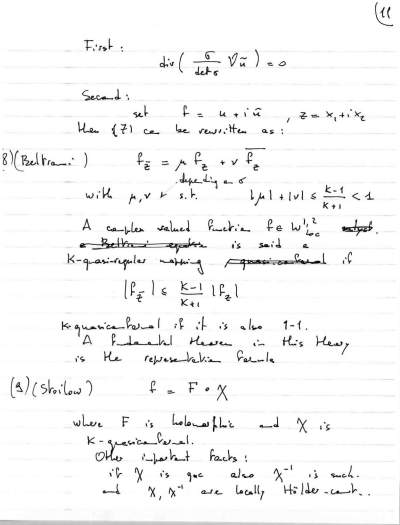 11
First:
div ( σ / det σ ∇ũ ) = 0
Second:
set f = u + i ũ , z = x₁ + i x₂
then (7) can be rewritten as:
8) (Beltrami) f_z̄ = μ f_z + ν \overline{f_z}
depending on σ
with μ, ν s.t. |μ| + |ν| ≤ K-1 / K+1 < 1
A complex valued function f ∈ W^{1,2}_{loc}
is said a
K-quasiregular mapping if
|f_z̄| ≤ K-1 / K+1 |f_z|
K-quasiconformal if it is also 1-1.
A fundamental theorem in this theory
is the representation formula
(9) (Stoilow) f = F ∘ χ
where F is holomorphic and χ is
K-quasiconformal.
Other important facts:
if χ is q.c. also χ⁻¹ is such.
and χ, χ⁻¹ are locally Hölder-cont..